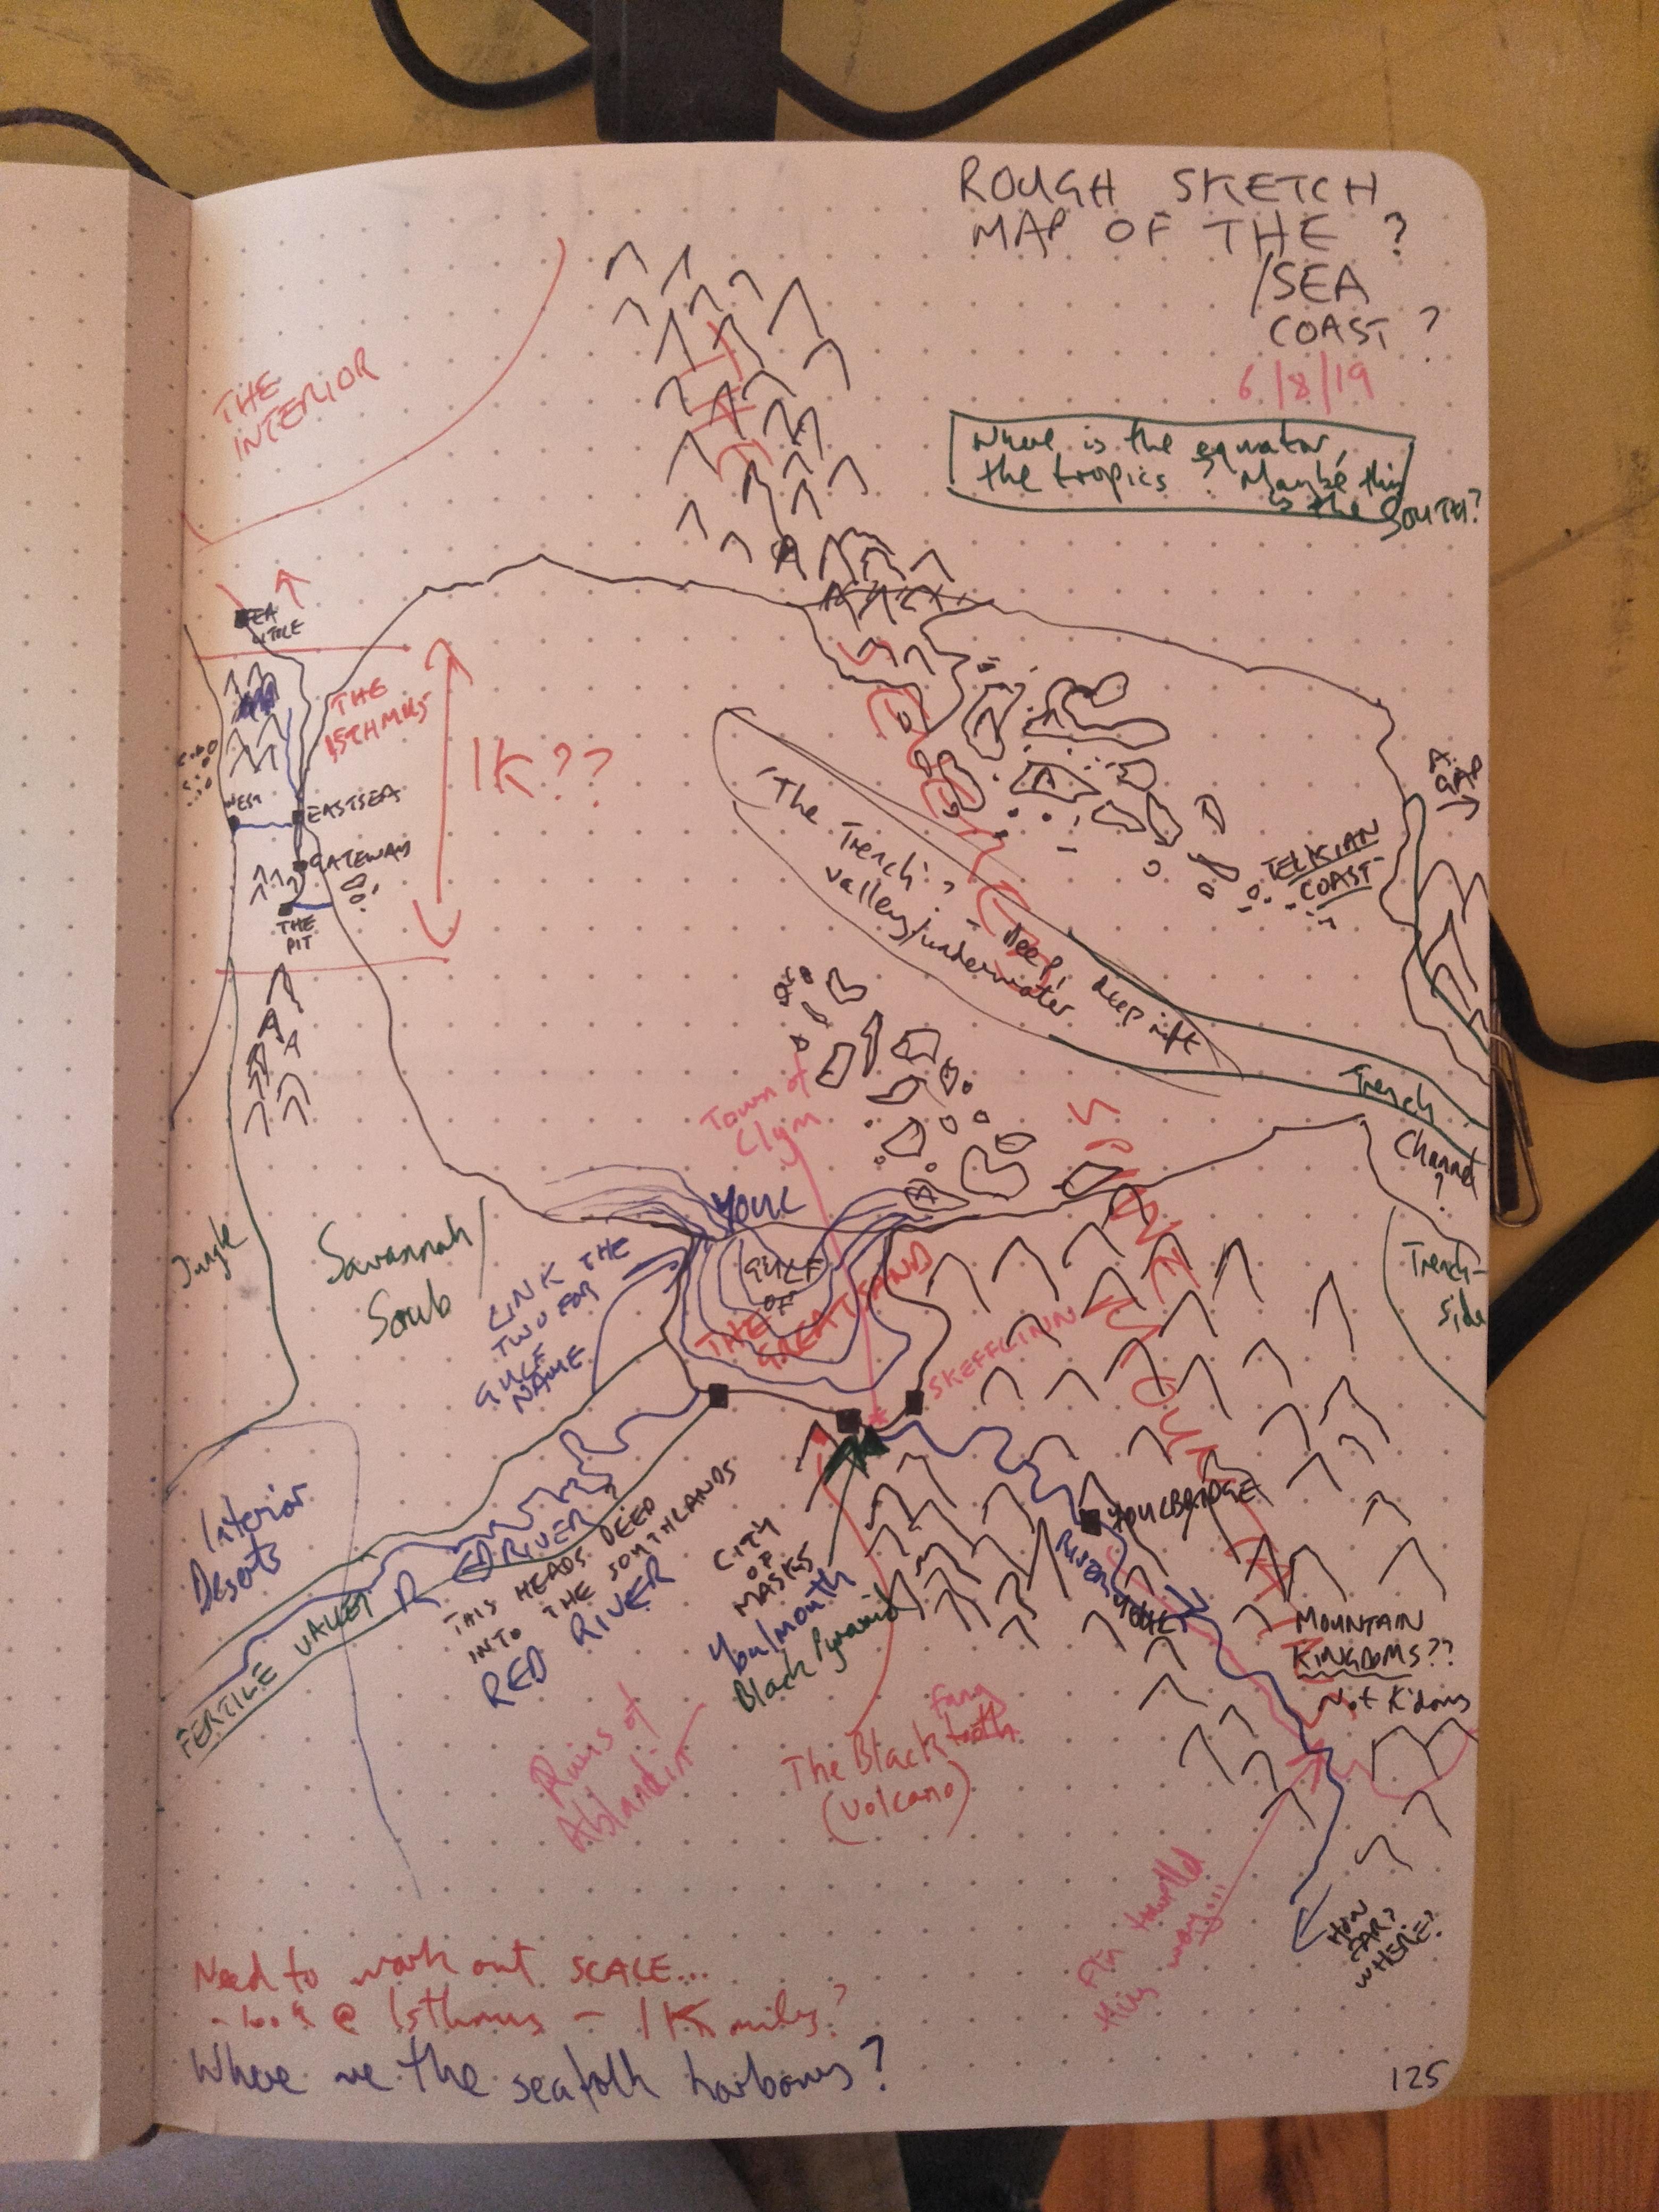 ROUGH SKETCH
MAP OF THE ?
/SEA
COAST ?
6/8/19
Where is the equator,
the tropics? Maybe this
is the SOUTH?
THE
INTERIOR
THE
ISTHMUS
1K??
WEST
EASTSEA
GATEWAY
THE
PIT
A
GAP
TELKIAN
COAST
The Trench? - Deep, deep rift
valley/underwater
Trench
Channel
?
Trench-
side
Town of
Clym
YOUL
GULF
OF
THE
GREAT SAND
LINK THE
TWO FOR
GULF
NAME
Jungle
Savannah/
Scrub
SKEFFLINN
SPINE
Interior
Deserts
FERTILE VALLEY
RED RIVER
THIS HEADS DEEP
INTO THE SOUTHLANDS
RED RIVER
CITY
OF
MASKS
Youlmouth
Black Pyramid
YOULBRIDGE
RIVER YOUL
MOUNTAIN
KINGDOMS??
Not K'doms
Ruins of
The Black tooth
fang
(volcano)
this way...
HOW
FAR?
WHERE?
Need to work out SCALE...
- look @ Isthmus - 1K miles?
Where are the seafolk harbours?
125